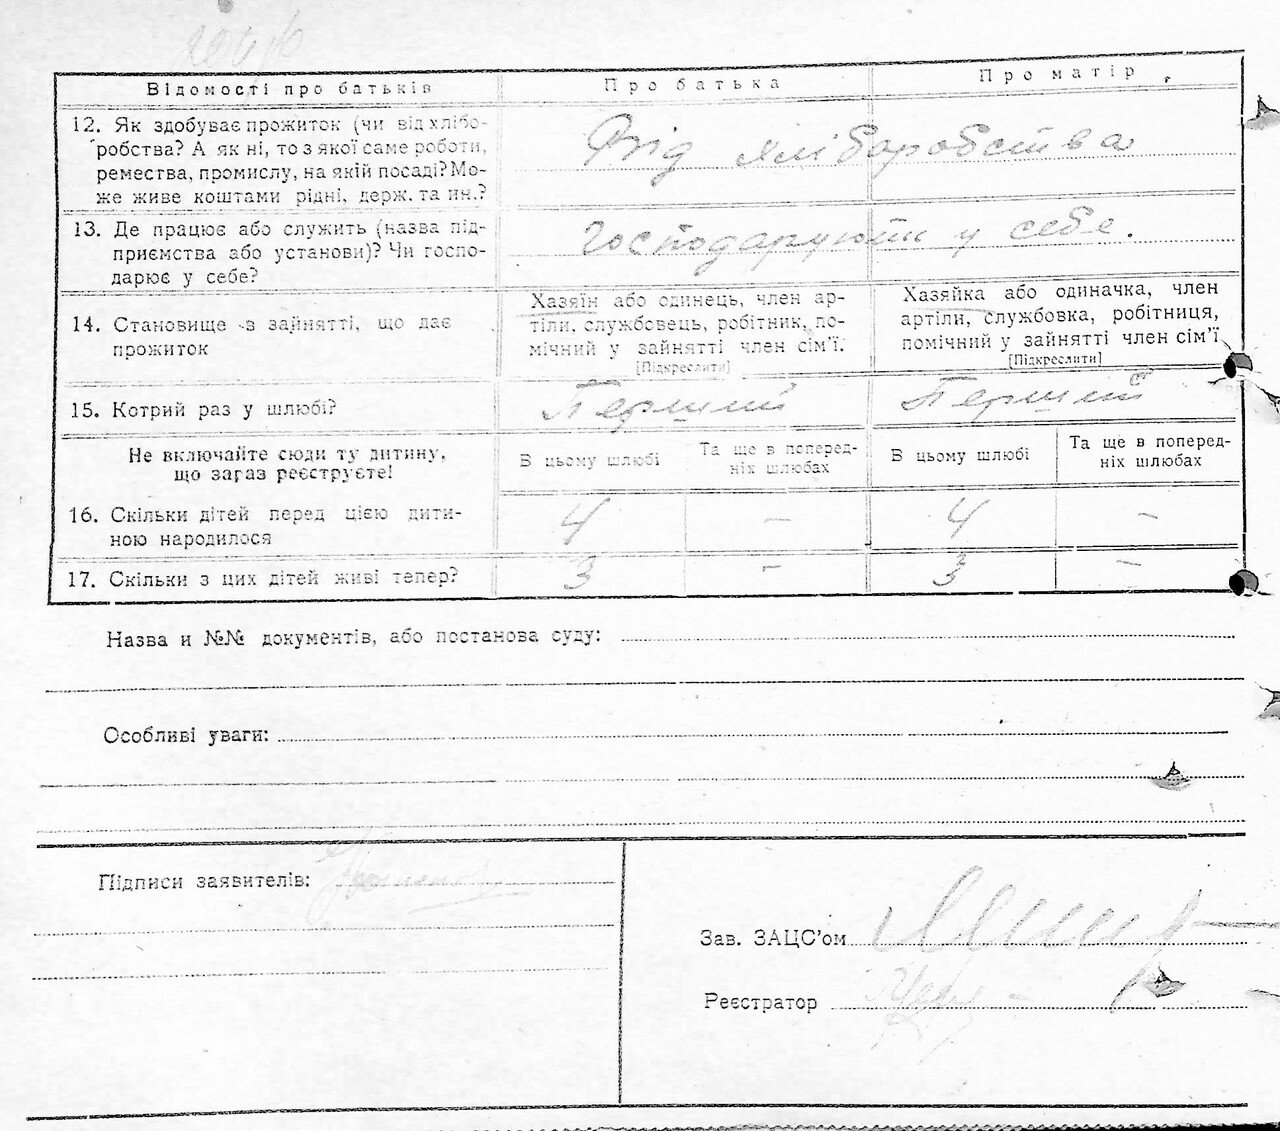 Відомості про батьків Про батька Про матір
12. Як здобуває прожиток (чи від хлібо-
робства? А як ні, то з якої саме роботи,
ремества, промислу, на якій посаді? Мо-
же живе коштами рідні, держ. та ин.?
Від хліборобства
13. Де працює або служить (назва під-
приємства або установи)? Чи госпо-
дарює у себе?
Господарюють у себе.
14. Становище з зайнятті, що дає
прожиток
Хазяїн або одинець, член ар-
тіли, службовець, робітник, по-
мічний у зайнятті член сім'ї.
[Підкреслити]
Хазяйка або одиначка, член
артіли, службовка, робітниця,
помічний у зайнятті член сім'ї
[Підкреслити]
15. Котрий раз у шлюбі? Перший Перший
Не включайте сюди ту дитину,
що зараз реєструєте!
В цьому шлюбі
Та ще в поперед-
ніх шлюбах
В цьому шлюбі
Та ще в поперед-
ніх шлюбах
16. Скільки дітей перед цією дити-
ною народилося
4 – 4 –
17. Скільки з цих дітей живі тепер? 3 – 3 –
Назва и №№ документів, або постанова суду:
Особливі уваги:
Підписи заявителів:
Зав. ЗАЦС'ом
Реєстратор